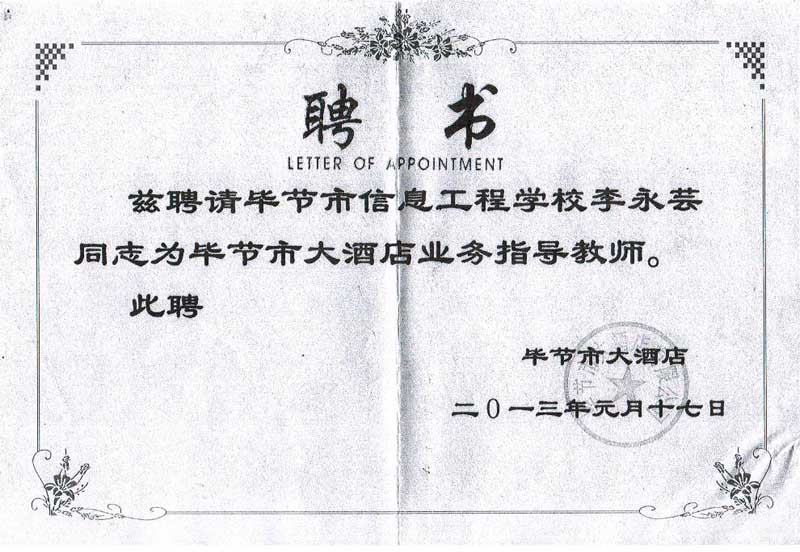 聘 书
LETTER OF APPOINTMENT
兹聘请毕节市信息工程学校李永芸
同志为毕节市大酒店业务指导教师。
此聘
毕节市大酒店
二0一三年元月十七日